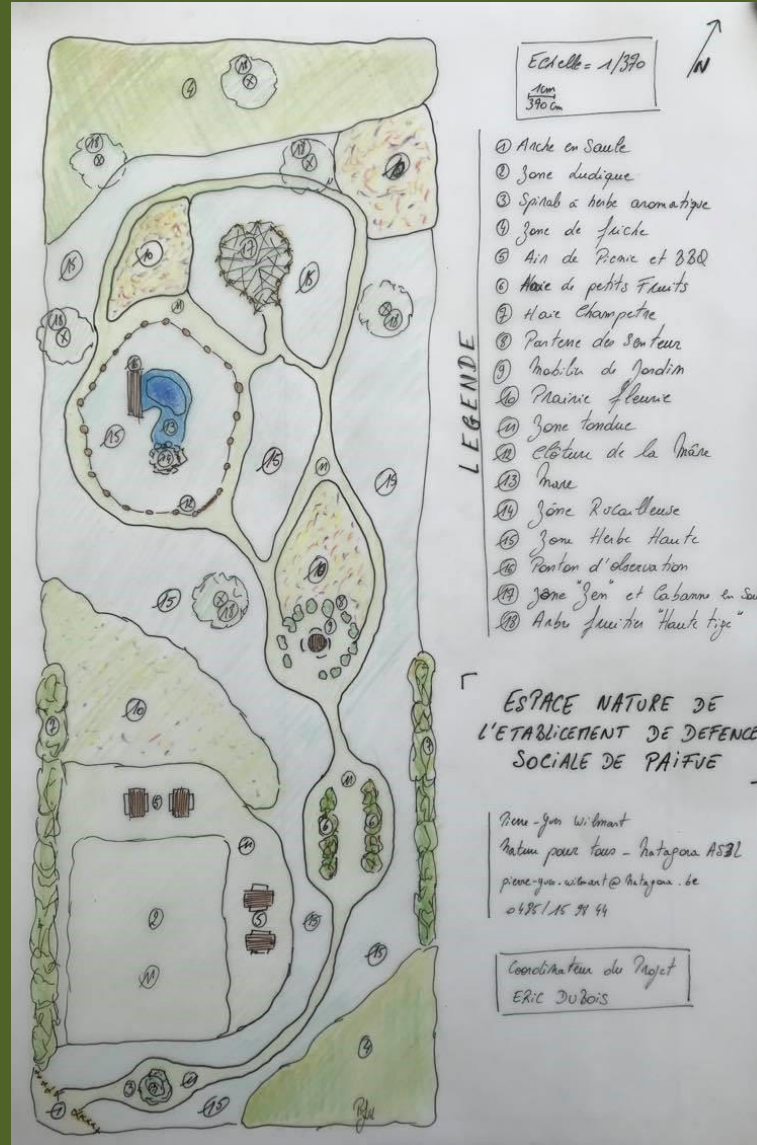 Echelle = 1/390
1cm
390 cm
N
LEGENDE
① Arche en Saule
② Zone Ludique
③ Spiral à herbe aromatique
④ Zone de friche
⑤ Air de Picnic et BBQ
⑥ Haie de petits Fruits
⑦ Haie Champetre
⑧ Parterre des Senteur
⑨ Mobilier de Jardin
⑩ Prairie fleurie
⑪ Zone tondue
⑫ Clôture de la Mâre
⑬ Mare
⑭ Zône Rocailleuse
⑮ Zone Herbe Haute
⑯ Ponton d'observation
⑰ Zone "Zen" et Cabanne en Sau
⑱ Arbre fruitier "Haute tige"
ESPACE NATURE DE
L'ETABLICEMENT DE DEFENCE
SOCIALE DE PAIFVE
Pierre-Yves Wilmart
Nature pour tous - Natagora ASBL
pierre-yves.wilmart@natagora.be
Coordinateur du Projet
ERIC DUBOIS